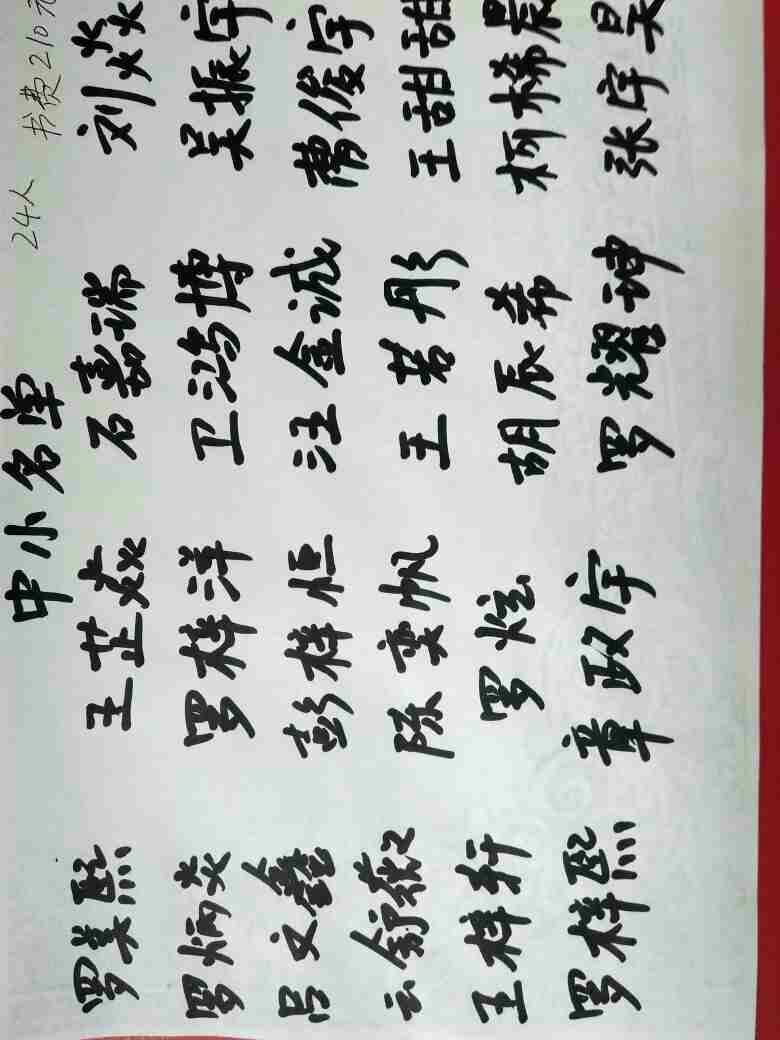 中小名单 24人 书费210元
罗美熙 王芷焱 石嘉瑞 刘焱
罗炳炎 罗梓洋 卫鸿博 吴振宇
吕文鑫 彭梓恒 汪金诚 费俊宇
王若彤 王甜甜
陈奕帆
王梓轩 罗炫 胡辰希 柯梯晨
罗梓熙 章政宇 罗耀坤 张宇昊